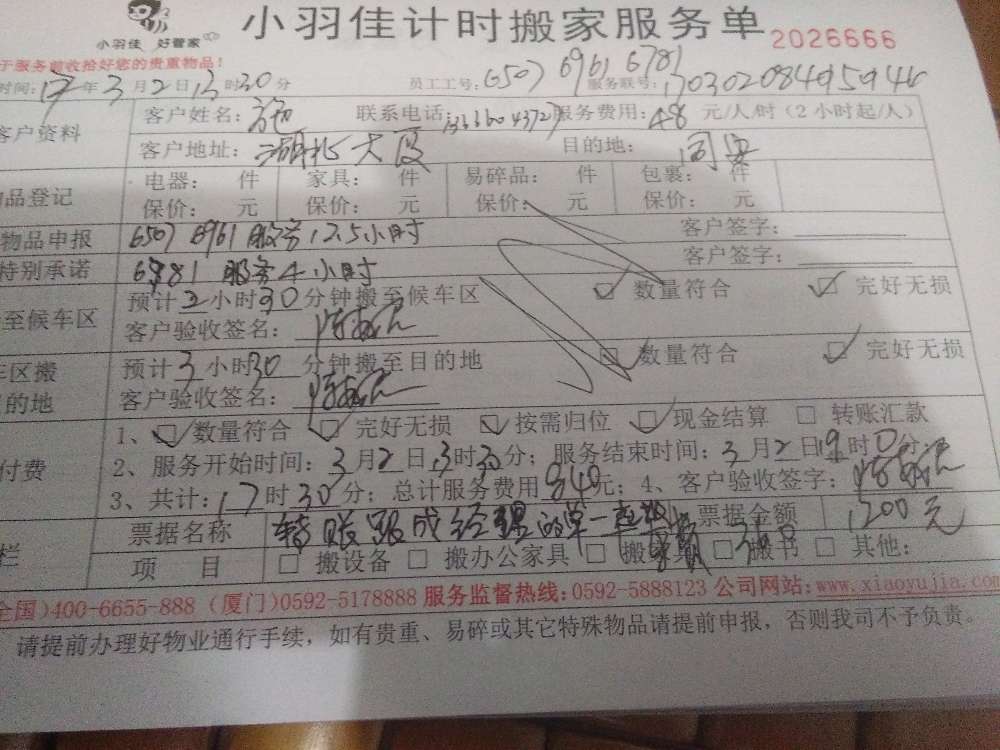 小羽佳 好管家
小羽佳计时搬家服务单
2026666
于服务前收拾好您的贵重物品!
时间:17年3月2日13时30分 员工工号:6507 6961 6781 服务联号:
客户资料
客户姓名: 联系电话: 服务费用:48元/人/时(2小时起/人)
客户地址:湖北大厦 目的地:同安
物品登记
电器: 件 家具: 件 易碎品: 件 包裹: 件
保价: 元 保价: 元 保价: 元 保价: 元
物品申报 6507 6961 服务12.5小时 客户签字:
特别承诺 6781 服务4小时 客户签字:
至候车区
预计2小时30分钟搬至候车区 数量符合 完好无损
客户验收签名:
车区搬
目的地
预计3小时30分钟搬至目的地 数量符合 完好无损
客户验收签名:
付费
1、数量符合 完好无损 按需归位 现金结算 转账汇款
2、服务开始时间:3月2日13时30分;服务结束时间:3月2日19时0分;
3、共计:17时30分;总计服务费用840元;4、客户验收签字:
栏
票据名称 转账 经理的单一起 票据金额 1200元
项 目 搬设备 搬办公家具 搬 搬书 其他:
全国)400-6655-888 (厦门)0592-5178888 服务监督热线:0592-5888123 公司网站:www.xiaoyujia.com
请提前办理好物业通行手续,如有贵重、易碎或其它特殊物品请提前申报,否则我司不予负责。